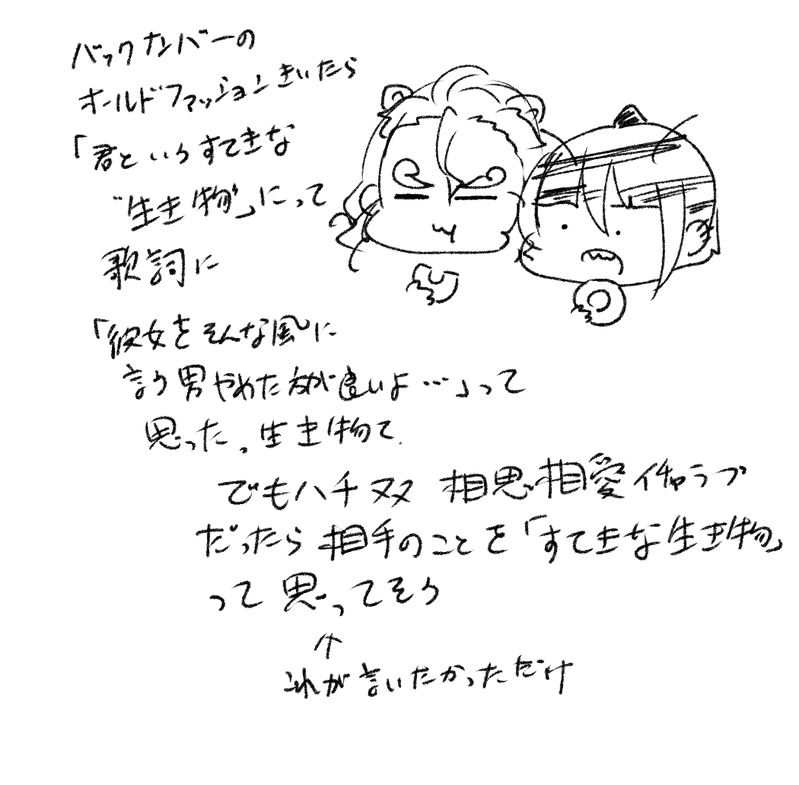 バックナンバーの
オールドファッションきいたら
「君というすてきな
"生き物"」にって
歌詞に
「彼女をそんな風に
言う男やめた方が良いよ…」って
思った。生き物て.
でもハチヌヌ 相思相愛イチャラブ
だったら相手のことを「すてきな生き物」
って思ってそう
↑
これが言いたかっただけ